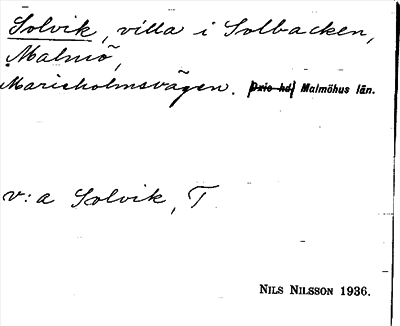 Solvik, villa i Solbacken,
Malmö,
Marieholmsvägen. Oxie hd Malmöhus län.
v:a Solvik, T
NILS NILSSON 1936.